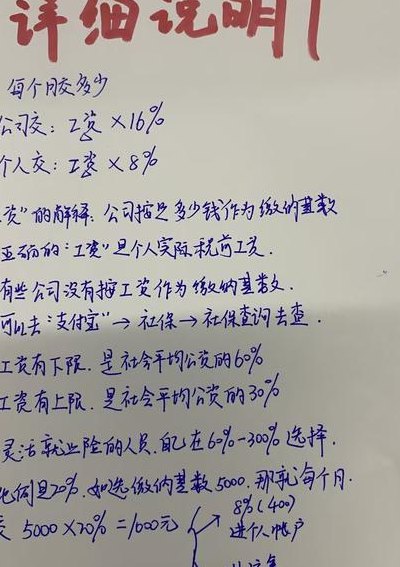 详细说明
每个月交多少
公司交：工资×16%
个人交：工资×8%
资”的解释：公司按足多少钱作为缴纳基数
的：“工资”是个人实际税前工资．
有些公司没有按工资作为缴纳基数．
可以去“支付宝”→社保→社保查询去查．
工资有下限．是社会平均公资的60%
工资有上限．是社会平均公资的30%
灵活就业险的人员．自己在60%-300%选择．
比例是20%．如选缴纳基数5000．那就每个月．
交 5000×20%=1000元
8%(400)
进个人帐户